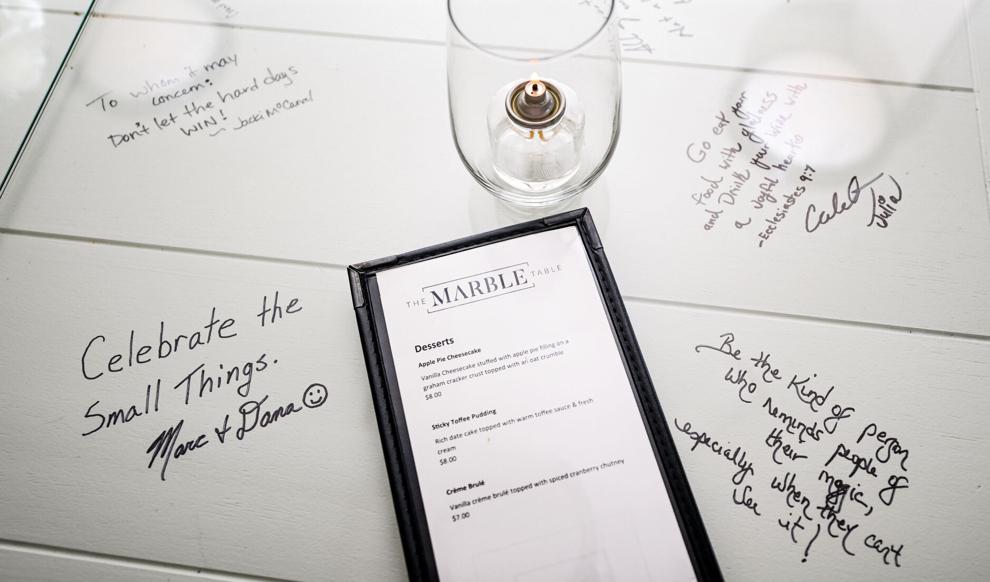 To whom it may
concern:
Don't let the hard days
WIN!
~ Jacki McCanal
Go eat your
food with gladness
and Drink your wine with
a joyful heart
-Ecclesiastes 9:7
Caleb
Julia
Celebrate the
Small Things.
Marc + Dana
THE MARBLE TABLE
Desserts
Apple Pie Cheesecake
Vanilla Cheesecake stuffed with apple pie filling on a
graham cracker crust topped with an oat crumble
$8.00
Sticky Toffee Pudding
Rich date cake topped with warm toffee sauce & fresh
cream
$8.00
Crème Brulé
Vanilla crème brulé topped with spiced cranberry chutney
$7.00
Be the kind of person
who reminds people of
their magic,
especially when they can't
see it!